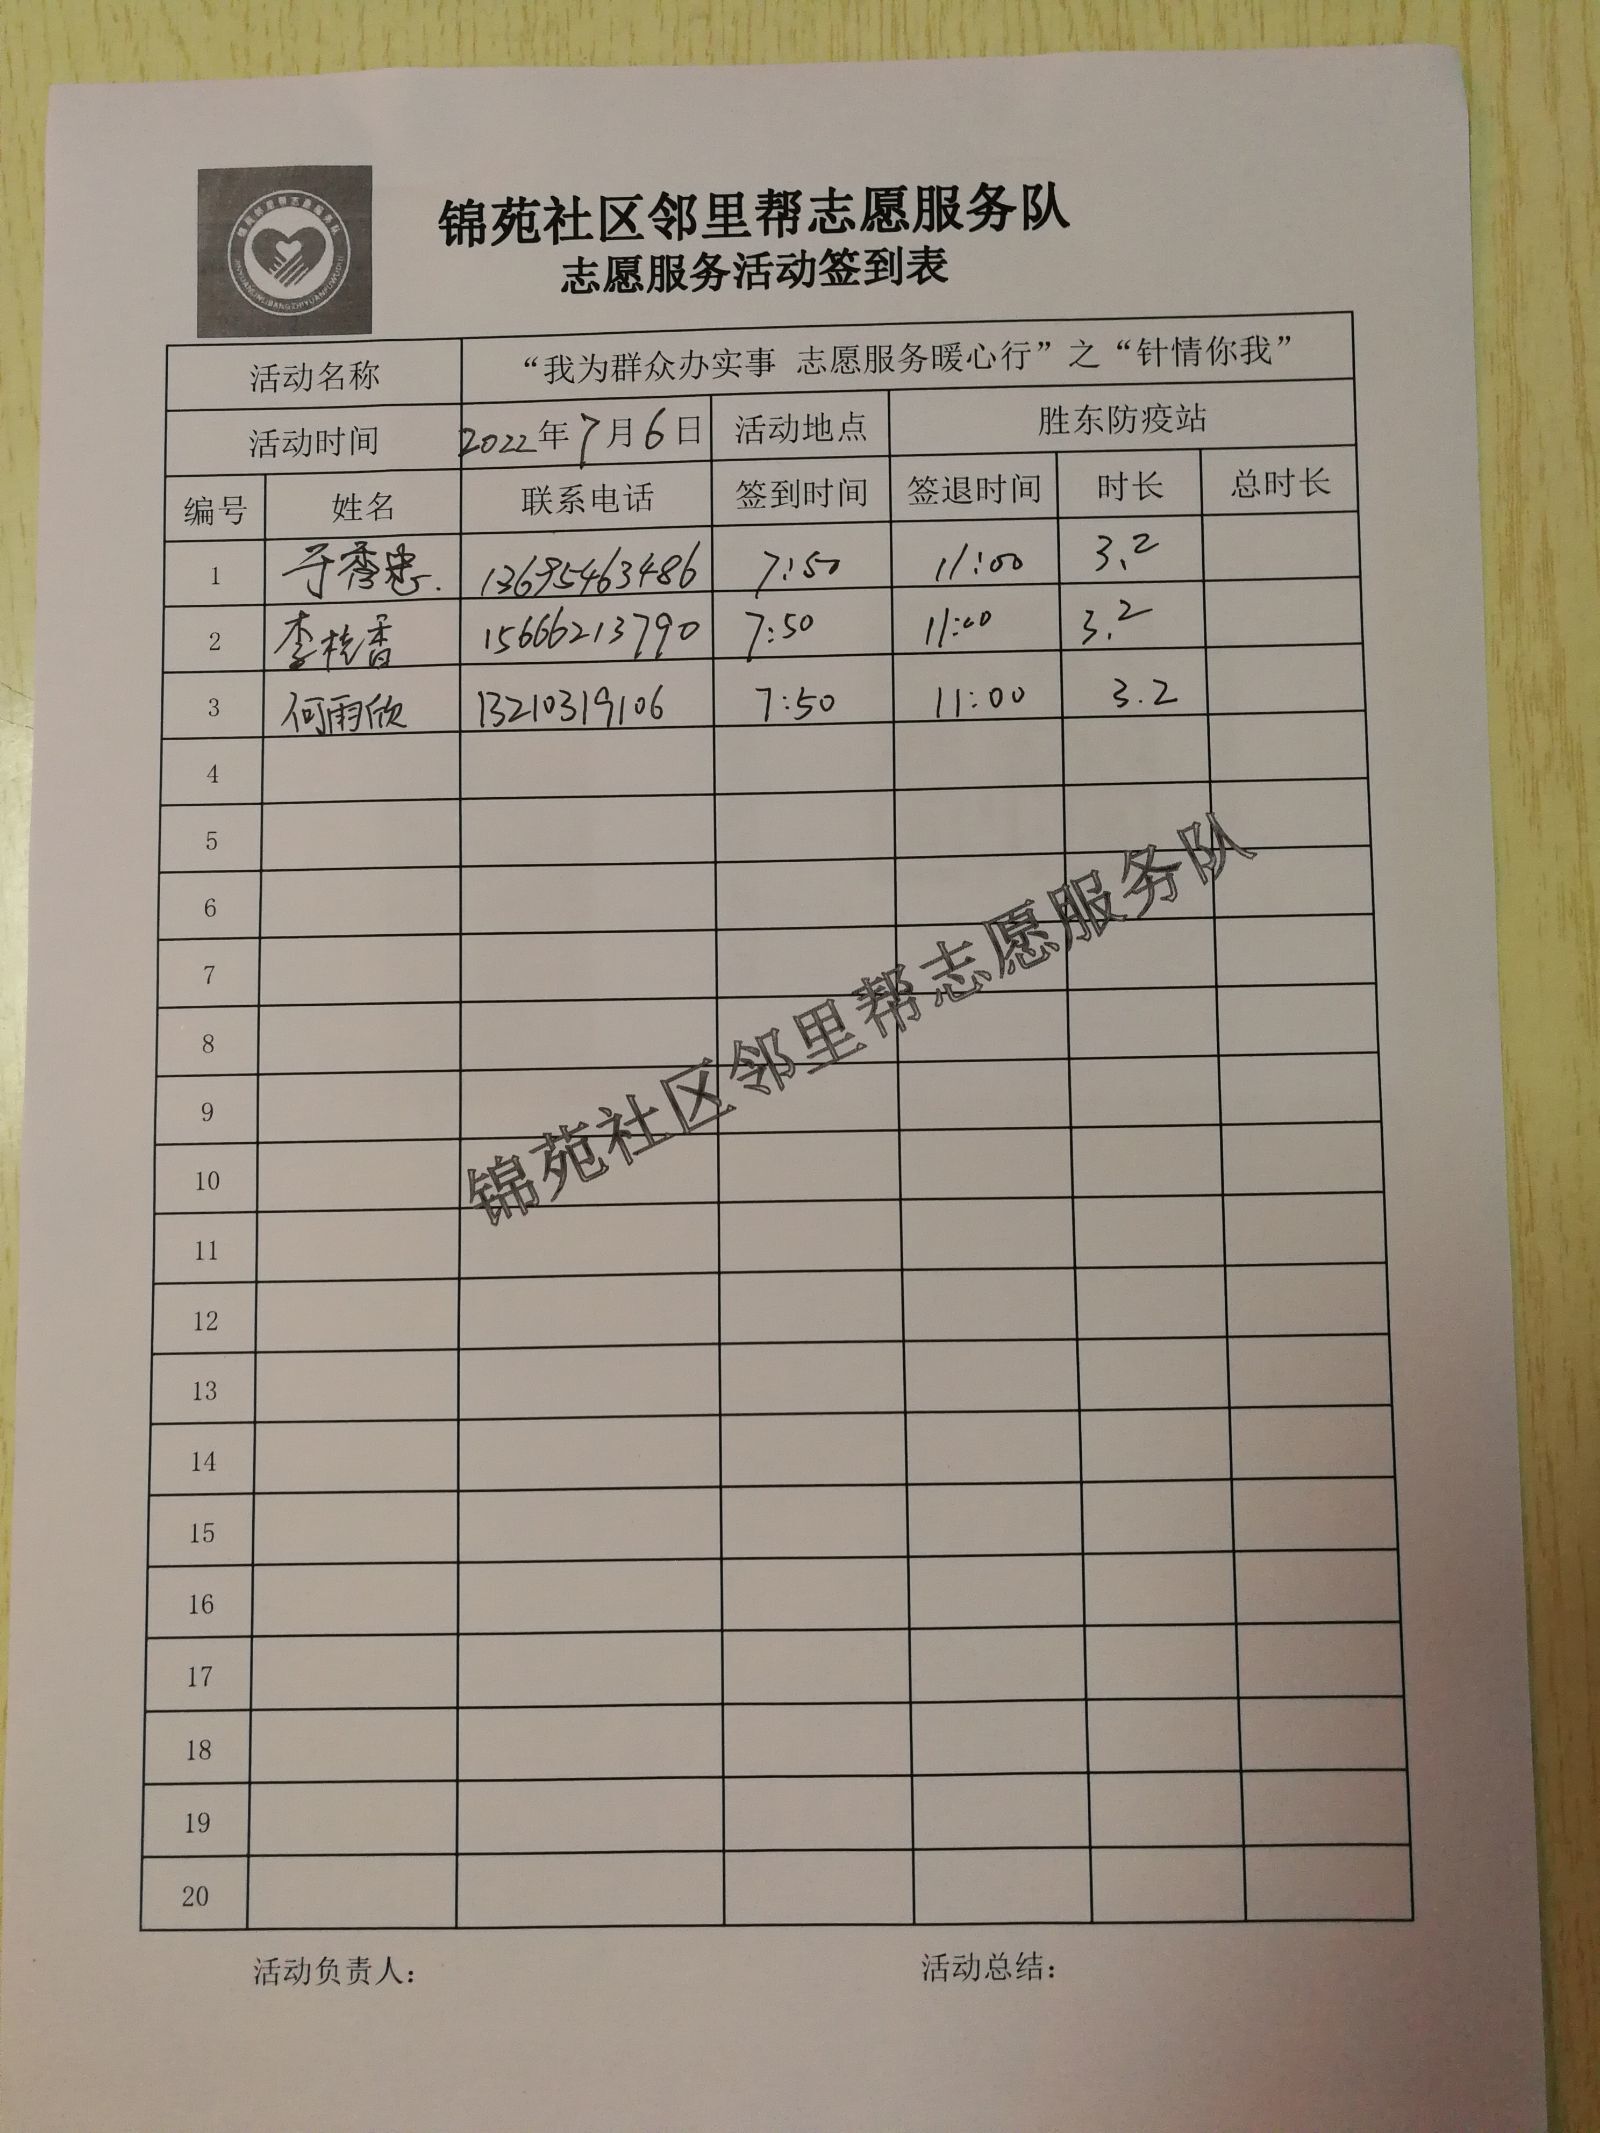 锦苑社区邻里帮志愿服务队
志愿服务活动签到表
活动名称 “我为群众办实事 志愿服务暖心行”之“针情你我”
活动时间 2022年7月6日 活动地点 胜东防疫站
编号 姓名 联系电话 签到时间 签退时间 时长 总时长
1 于秀忠 13695463486 7:50 11:00 3.2
2 李桂香 15666213790 7:50 11:00 3.2
3 何雨欣 13210319106 7:50 11:00 3.2
4
5
6
7
8
9
10
11
12
13
14
15
16
17
18
19
20
锦苑社区邻里帮志愿服务队
活动负责人： 活动总结：